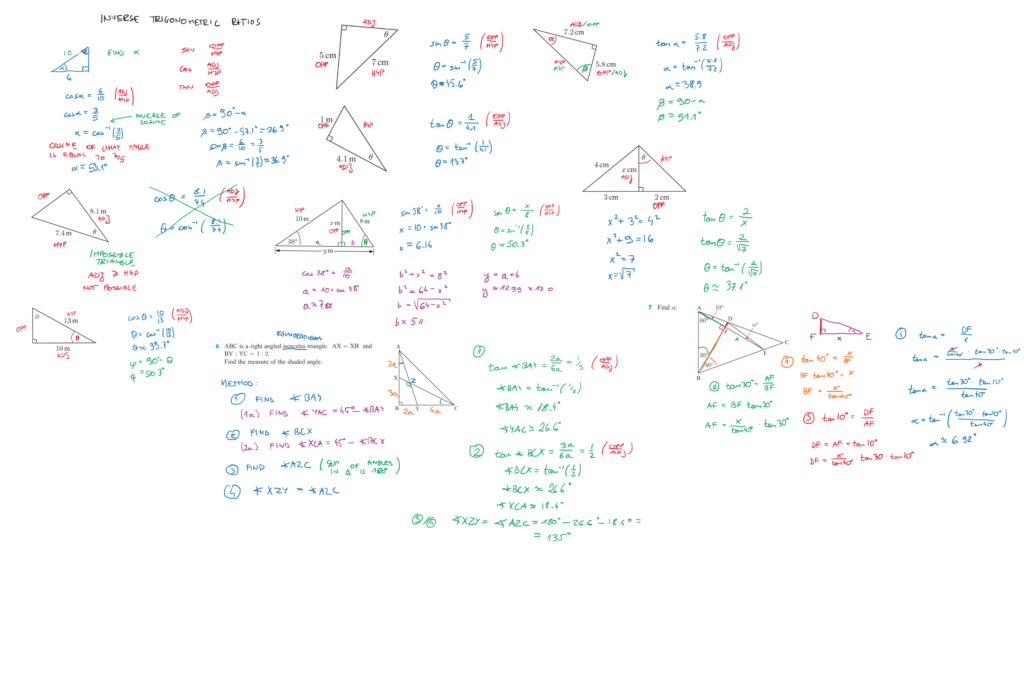 INVERSE TRIGONOMETRIC RATIOS
10
α
6
FIND α
SIN OPP/HYP
COS ADJ/HYP
TAN OPP/ADJ
cosα = 6/10 (ADJ/HYP)
cosα = 3/5
α = cos⁻¹(3/5)
← INVERSE OF COSINE
COSINE OF WHAT ANGLE
IS EQUAL TO 3/5
α ≈ 53.1°
β = 90° - α
β = 90° - 53.1° = 36.9°
sinβ = 6/10 = 3/5
β = sin⁻¹(3/5) ≈ 36.9°
ADJ
θ
5 cm
OPP
7 cm
HYP
sin θ = 5/7 (OPP/HYP)
θ = sin⁻¹(5/7)
θ ≈ 45.6°
1 m
OPP
HYP
4.1 m
ADJ
θ
tan θ = 1/4.1 (OPP/ADJ)
θ = tan⁻¹(1/4.1)
θ = 13.7°
ADJ/OPP
7.2 cm
α
5.8 cm
OPP/ADJ
β
HYP
tan α = 5.8/7.2 (OPP/ADJ)
α = tan⁻¹(5.8/7.2)
α = 38.9
β = 90 - α
β = 51.1°
4 cm
x cm
ADJ
θ
HYP
3 cm
2 cm
OPP
x² + 3² = 4²
x² + 9 = 16
x² = 7
x = √7
tan θ = 2/x
tan θ = 2/√7
θ = tan⁻¹(2/√7)
θ ≈ 37.1°
OPP
8.1 m
ADJ
7.4 m
θ
HYP
cos θ = 8.1/7.4 (ADJ/HYP)
θ = cos⁻¹(8.1/7.4)
IMPOSSIBLE
TRIANGLE
ADJ > HYP
NOT POSSIBLE
HYP
10 m
x m
OPP
OPP
HYP
8 m
38°
a
b
θ
y m
sin 38° = x/10 (OPP/HYP)
x = 10 · sin 38°
x ≈ 6.16
sin θ = x/8 (OPP/HYP)
θ = sin⁻¹(x/8)
θ ≈ 50.3°
cos 38° = a/10
a = 10 · cos 38°
a ≈ 7.88
b² + x² = 8²
b² = 64 - x²
b = √64 - x²
b ≈ 5.11
y = a + b
y ≈ 12.99 ≈ 13.0
OPP
φ
HYP
13 m
θ
10 m
ADJ
cos θ = 10/13 (ADJ/HYP)
θ = cos⁻¹(10/13)
θ ≈ 39.7°
φ = 90° - θ
φ = 50.3°
6 ABC is a right angled isosceles triangle. AX = XB and
BY : YC = 1 : 2.
Find the measure of the shaded angle.
A
3a
X
Z
3a
B
2a
Y
4a
C
METHOD:
① FIND ∡BAY
(1a) FIND ∡YAC = 45° - ∡BAY
② FIND ∡BCX
(2a) FIND ∡XCA = 45° - ∡BCX
③ FIND ∡AZC (SUM OF ANGLES IN Δ IS 180°)
④ ∡XZY = ∡AZC
①
tan ∡BAY = 2a/6a = 1/3 (OPP/ADJ)
∡BAY = tan⁻¹(1/3)
∡BAY ≈ 18.4°
∡YAC ≈ 26.6°
② tan ∡BCX = 3a/6a = 1/2 (OPP/ADJ)
∡BCX = tan⁻¹(1/2)
∡BCX ≈ 26.6°
∡XCA ≈ 18.4°
∡XZY = ∡AZC = 180° - 26.6° - 18.4° =
= 135°
7 Find α:
A
10°
60°
D
α
C
F
x
E
30°
40°
B
D
F
x
E
① tan 40° = x/BF
BF tan 40° = x
BF = x/tan40°
② tan30° = AF/BF
AF = BF tan30°
AF = x/tan40° · tan 30°
③ tan10° = DF/AF
DF = AF · tan10°
DF = x/tan40° · tan30 · tan10°
④ tanα = DF/x
tanα = x/tan40° · tan30° · tan10°/x
tanα = tan30° · tan10°/tan40°
α = tan⁻¹(tan30° · tan10°/tan40°)
α ≈ 6.92°